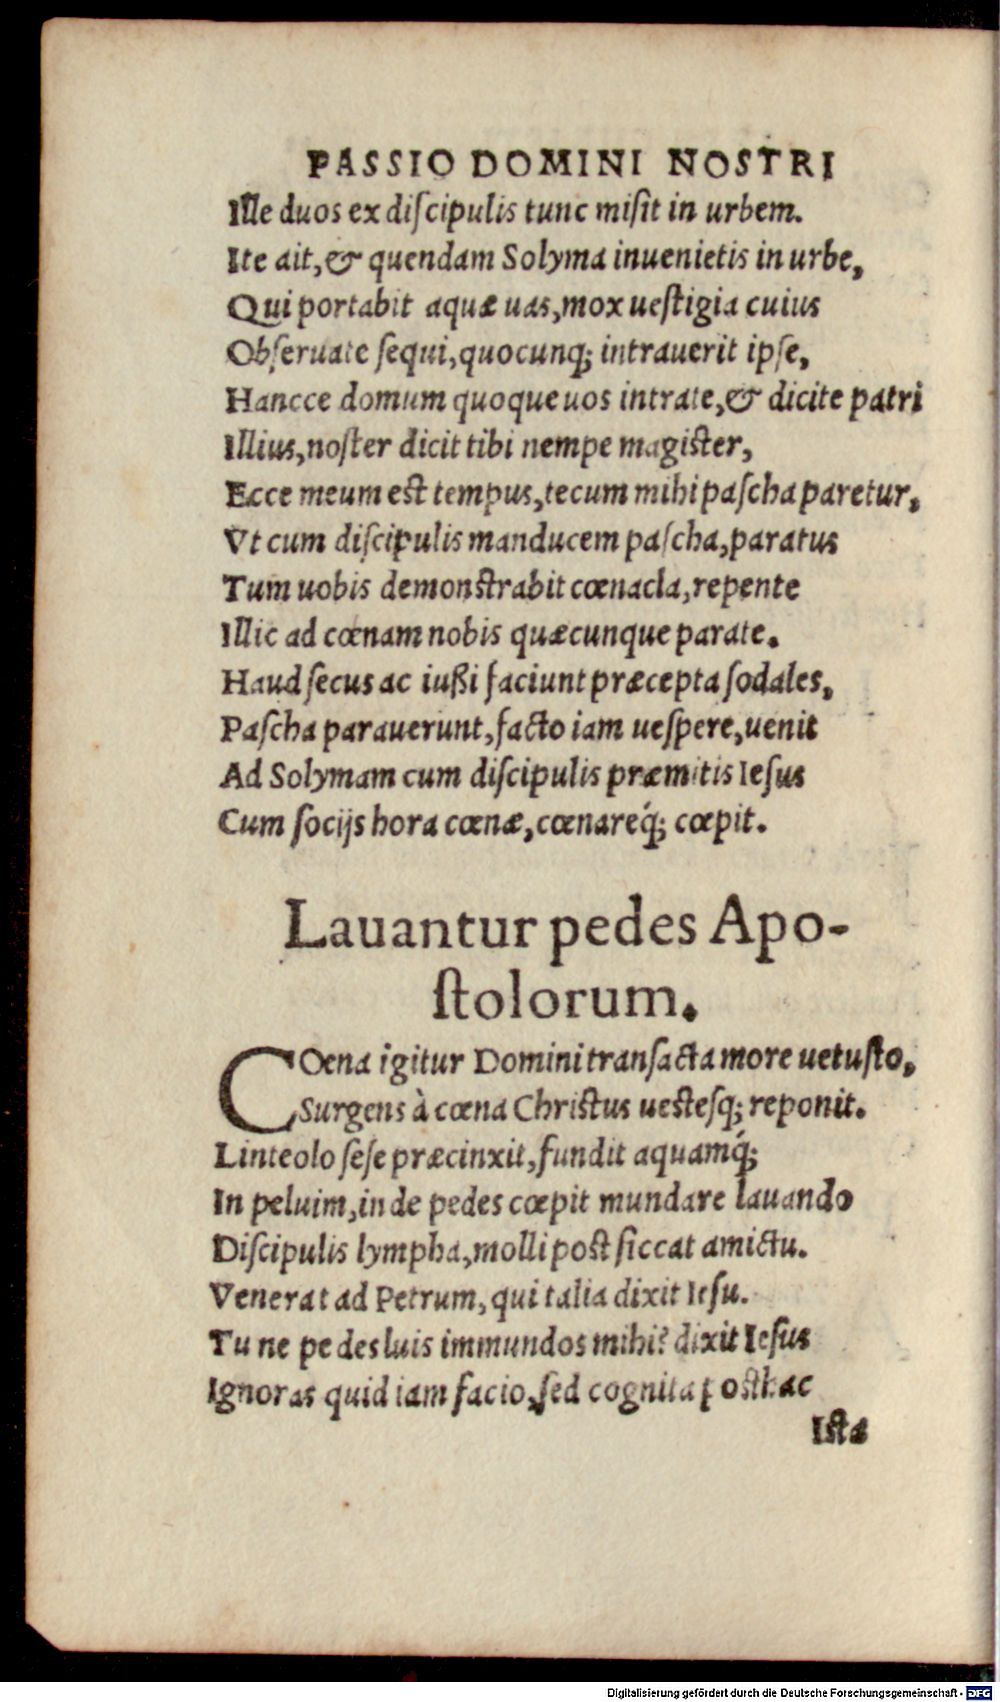 PASSIO DOMINI NOSTRI
Ille duos ex diſcipulis tunc miſit in urbem.
Ite ait, & quendam Solyma inuenietis in urbe,
Qui portabit aquæ uas, mox ueſtigia cuius
Obſeruate ſequi, quocunq; intrauerit ipſe,
Hancce domum quoque uos intrate, & dicite patri
Illius, noſter dicit tibi nempe magiſter,
Ecce meum eſt tempus, tecum mihi paſcha paretur,
Vt cum diſcipulis manducem paſcha, paratus
Tum uobis demonſtrabit cœnacla, repente
Illic ad cœnam nobis quæcunque parate.
Haud ſecus ac iußi faciunt præcepta ſodales,
Paſcha parauerunt, facto iam ueſpere, uenit
Ad Solymam cum diſcipulis præmitis Ieſus
Cum ſocijs hora cœnæ, cœnareq́; cœpit.
Lauantur pedes Apo-
ſtolorum.
COena igitur Domini tranſacta more uetuſto,
Surgens à cœna Chriſtus ueſteſq; reponit.
Linteolo ſeſe præcinxit, fundit aquamq́;
In peluim, inde pedes cœpit mundare lauando
Diſcipulis lympha, molli poſt ſiccat amictu.
Venerat ad Petrum, qui talia dixit Ieſu.
Tu ne pedes luis immundos mihi? dixit Ieſus
Ignoras quid iam facio, ſed cognita poſthac
Iſta
Digitalisierung gefördert durch die Deutsche Forschungsgemeinschaft - DFG